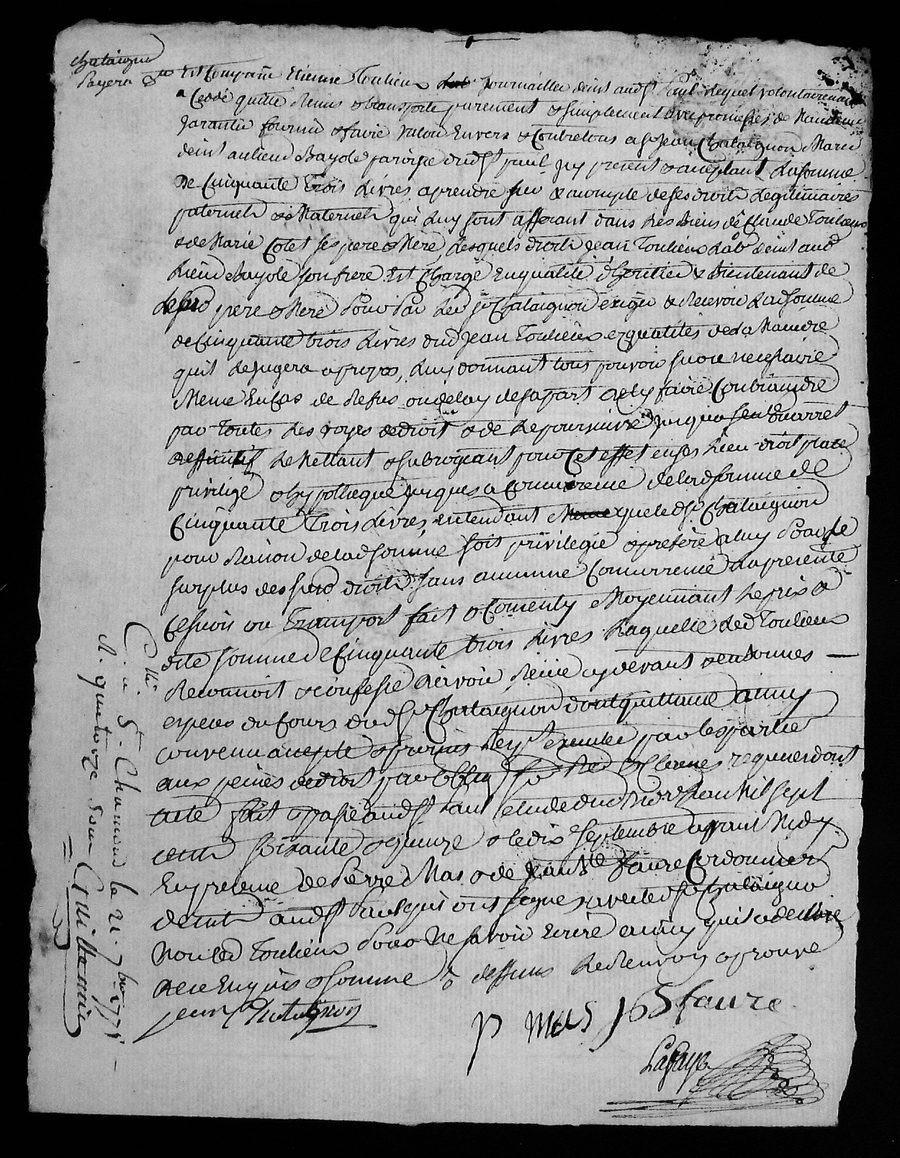 chataignon
payera
Est Comparu Etienne Toulieu journallier deint audt st paul Lequel volontairement
a Cedé quitté Remis & transporté purement & simplement avec promesses de Maintenir
garantir fournir & faire valoir Envers & Contre tous a st jean Chataignon Marié
deint au lieu de Bayole paroisse dudt st paul, jcy present & acceptant La somme
De Cinquante trois Livres a prendre sur & acompte de ses droits Legitimaires
paternels & Maternels qui Luy sont afferant dans Les Biens de Claude Toulieux
& de Marie Cotet ses pere & Mere, Lesquels droits jean Toulieux Labr deint aud
Lieu de Bayole son frere Est Chargé En qualité d'heritier & bientenant de
sesd pere & Mere pour par Led st Chataignon exiger & Recevoir Lad somme
de Cinquante trois Livres dud jean Toulieux es qualités & de La Maniere
quil Le jugera apropos, Luy donnant tous pouvoir sur ce necessaire
Meme En Cas de Refus ou delay de sa part de Ly faire Contraindre
par toutes Les voyes de droit & de Le poursuivre jusqua sentence arret
deffinitif Le Mettant & subrogeant pour Cet effet en ses Lieu droit place
privilege & hypotheque jusques a Concurrence de lad somme de
Cinquante trois Livres, entendant que le d st Chataignon
pour Raison de lad somme soit privilegié & preferé a Luy pour le
surplus des susd droits sans aucunne Concurrence La presente
Cession ou Transport fait & Consenty Moyennant Le prix &
dite somme de Cinquante trois Livres Laquelle Led Toulieux
Reconnoit & confesse avoir Reçue cy devant & en bonnes
especes du Cours dud st Chataignon dont quittance ainsy
convenu accepté & promis Respt executer par les parties
aux peines de droit par oblig sous Red & Clauses requerant
acte fait & passé audt st paul etude du no re Lan Mil sept
cent soixante & quinze & le dix septembre avant Midy
En presence de pierre Mas & de jean bte faure Cordonnier
deint audt st paul qui ont signé avec led st Chataignon
Non led Toulieux pour Ne savoir Ecrire ainsy quil a declaré
de ce Enquis & sommé & dessus Le Renvoy aprouvé
jean Chataignon
p mas jB faure
Lafaye
C. llé a St Chamond le 21 7bre 1775
R. quatorze sous
Guillermin